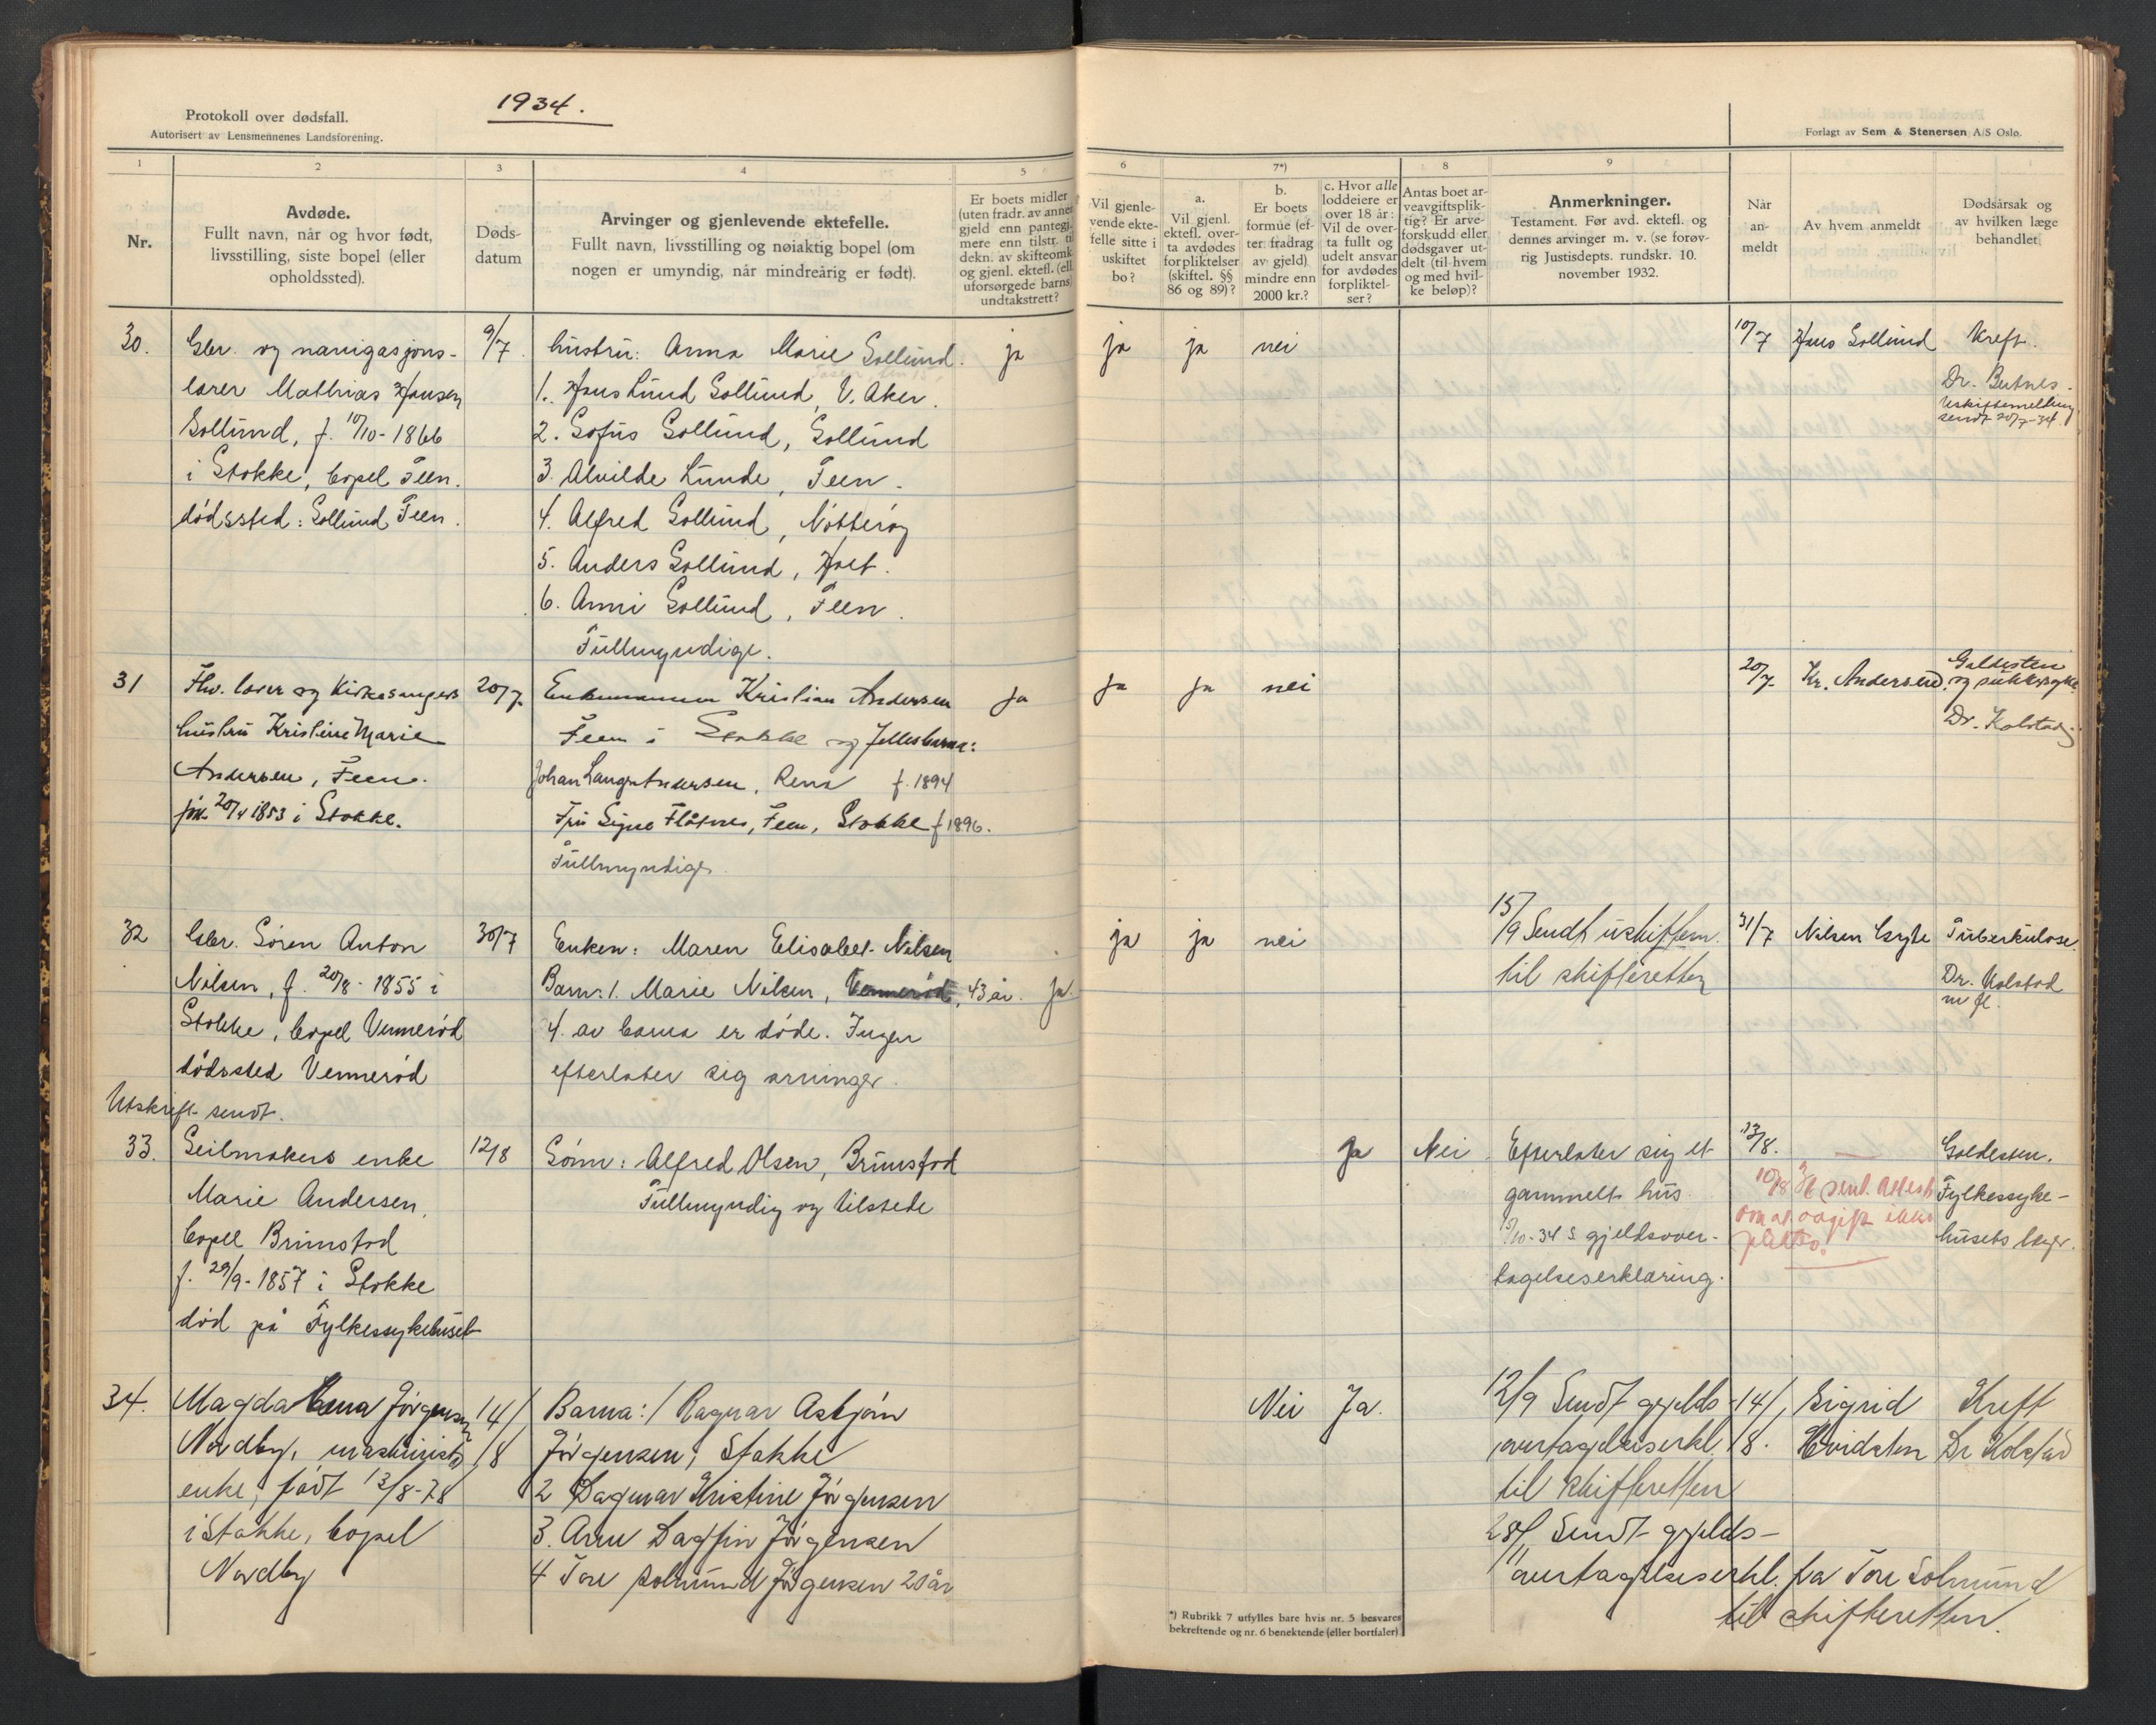 1934.
Protokoll over dødsfall.
Autorisert av Lensmennenes Landsforening.
Forlagt av Sem & Stenersen A/S Oslo.
1
2
3
4
5
6
7*)
8
9
Nr.
Avdøde.
Fullt navn, når og hvor født,
livsstilling, siste bopel (eller
opholdssted).
Døds-
datum
Arvinger og gjenlevende ektefelle.
Fullt navn, livsstilling og nøiaktig bopel (om
nogen er umyndig, når mindreårig er født).
Er boets midler
(uten fradr. av annen
gjeld enn pantegj-
mere enn tilstr. til
dekn. av skifteomk.
og gjenl. ektefl. (ell.
uforsørgede barns)
undtakstrett?
Vil gjenle-
vende ekte-
felle sitte i
uskiftet
bo?
a.
Vil gjenl.
ektefl. over-
ta avdødes
forpliktelser
(skiftel. §§
86 og 89)?
b.
Er boets
formue (ef-
ter fradrag
av gjeld)
mindre enn
2000 kr.?
c. Hvor alle
loddeiere er
over 18 år:
Vil de over-
ta fullt og
udelt ansvar
for avdødes
forpliktel-
ser?
Antas boet ar-
veavgiftsplik-
tig? Er arve-
forskudd eller
dødsgaver ut-
delt (til hvem
og med hvil-
ke beløp)?
Anmerkninger.
Testament. Før avd. ektefl. og
dennes arvinger m. v. (se forøv-
rig Justisdepts. rundskr. 10.
november 1932.
Når
an-
meldt
Av hvem anmeldt
Dødsårsak og
av hvilken læge
behandlet
30.
Gbr. og navigasjons-
lærer Mathias Hansen
Sollund, f. 10/10-1866
i Stokke, bopel Feen.
dødssted: Sollund Feen.
9/7.
hustru: Anna Marie Sollund.
1. Hans Lund Sollund, V. Aker.
2. Sofus Sollund, Sollund
3. Alvilde Lunde, Feen.
4. Alfred Sollund, Nøtterøy
5. Anders Sollund, Holt.
6. Anni Sollund, Feen.
Fullmyndige.
ja
ja
ja
nei
10/7
Hans Sollund
Kreft.
Dr. Butnes.
Uskiftemelding
sendt 20/7-34.
31
Fhv. lærer og kirkesangers
hustru Kristine Marie
Andersen, Feen.
20/4 1853 i Stokke.
20/7
Enkemannen Kristian Andersen
Feen i Stokke og fellesbarna:
Johan Lange Andersen, Rena f. 1894
Fru Signe Flåtnes, Feen, Stokke f 1896.
Fullmyndige
ja
ja
ja
nei
20/7
Kr. Andersen.
Galdesten
og sukkersyke
Dr. Kolstad
32
Gbr. Sören Anton
Nilsen, f. 20/8-1855 i
Stokke, bopel Vennerød
dödssted Vennerød
Utskrift sendt.
30/7
Enken: Maren Elisabet Nilsen
Barn: 1. Marie Nilsen, Vennerød, 43 år.
4. av barna er døde. Ingen
efterlater sig arvinger.
ja.
ja
ja
nei
15/9 Sendt uskiftem.
til skifteretten
31/7
Nilsen
Tuberkulose.
Dr. Kolstad
m fl.
33.
Seilmakers enke
Marie Andersen,
bopel Brunstad
f. 29/9-1857 i Stokke
död på Fylkessykehuset
12/8
Sönn: Alfred Olsen, Brunstad
Fullmyndig og tilstede
Ja
Nei
Efterlater sig et
gammelt hus.
/10-34 s. gjeldsover-
tagelseserklæring.
13/8.
sent. attest
om at avgift ikke
Galdesten.
Fylkessyke-
husets læge.
34.
Magda Jörgensen
Nordby, maskinists
enke, født 13/8-78
i Stokke, bopel
Nordby
14/8
Barna: 1 Ragnar Asbjørn
Jörgensen, Stokke
2 Dagmar Kristine Jörgensen
3. Arne Dagfin Jörgensen
4 Tore Solmund Jörgensen 20 år
Nei
Ja.
12/9 Sendt gjelds-
overtagelseserkl.
til skifteretten
28/11 Sendt gjelds-
overtagelseserkl. fra Tore Solmund
til skifteretten.
14/8.
Sigrid
Hvidsten
Kreft
Dr Kolstad
*) Rubrikk 7 utfylles bare hvis nr. 5 besvares
bekreftende og nr. 6 benektende (eller bortfaler)